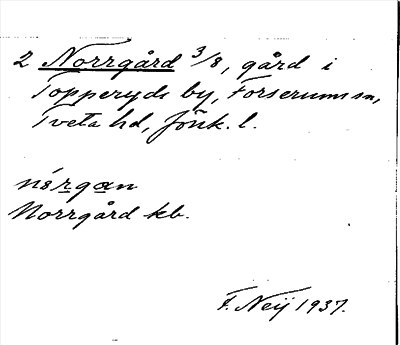 2 Norrgård 3/8, gård i
Topperyds by, Forserums sn,
Tveta hd, Jönk. l.
nórgan
Norrgård kb.
F. Neij 1937.